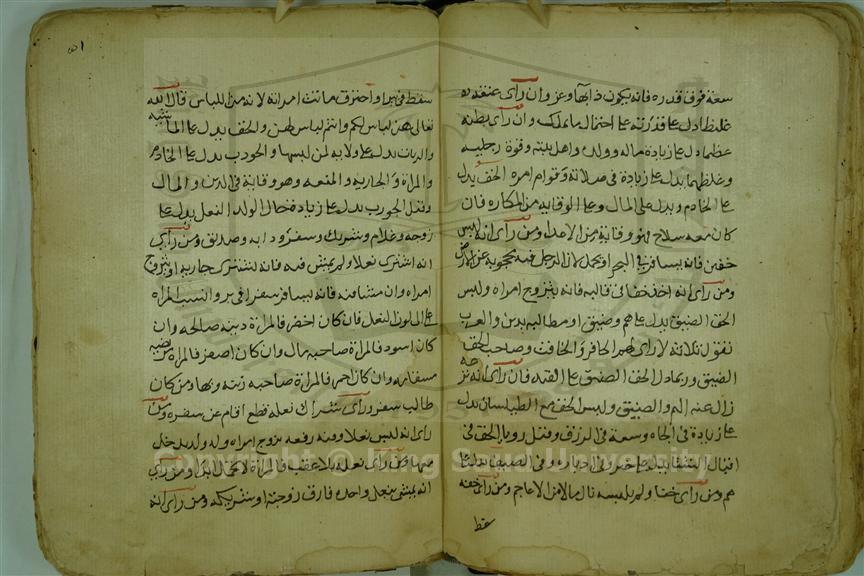 سعة فوق قدره فانه يكون ذا بها وعز وان رأى عنقه ده
غلظا دل على قدرته على احتمال ما ملك وان رأى بطنه
عظما دل على زيادة ماله وولده واهل بيته وقوة رجليه
وغلظهما يدل على زيادة في صلاته وقوام امره الخف يدل
على الخادم ويدل على المال وعلى الوقاية من المكاره فان
كان معه سلاح فهو وقاية من الاعداء ومن رأى انه لابس
خفين فانه يسافر في البحر لان الرجل فيه محجوبة عن الارض
ومن رأى انه اخذ خفا في قالبه فانه يتزوج امراه ولبس
الخف الضيق يدل على هم وضيق او مطالبه بدين والعرب
تقول ثلاثة لا رأى لهم الحاقن والحاقب وصاحب الخف
الضيق وربما دل الخف الضيق على القيد فان رأى انه نزعه
زال عنه الهم والضيق ولبس الخف مع الطيلسان يدل
على زيادة في الجاه وسعة في الرزق وقيل رويا الخف في
اقبال الشتا يدل على خير وفي ادباره وفي الصيف يدل على
هم ومن رأى خفا ولم يلبسه نال مالا من الاعاجم ومن رأى خفه
سقط
سقط في بير او احترق ماتت امراته لانه من اللباس قال الله
تعالى هن لباس لكم وانتم لباس لهن والخف يدل على الماشيه
والدين يدل على ولايه لمن لبسها والجورب يدل على الخادم
والمراة والجارية والمتعه وهو وقاية في الدين والمال
وقيل الجورب يدل على زيادة حال الولد النعل يدل على
زوجه وغلام وشريك وسفر ودابه وصديق ومن رأى
انه اشترى نعلا ولم يمش فيه فانه يشترى جارية او يتزوج
امراه وان مشا فيه فانه يسافر سفرا في بر وانسب المراه
على لون النعل فان كان اخضر فالمراة دينه صالحه وان
كان اسود فالمراة صاحبة مال وان كان اصفر فالمراه
مسقامه وان كان احمر فالمراة صاحبه زينه وبها ومن كان
طالب سفر ورأى شراك نعله قطع اقام عن سفره ومن
رأى انه لبس نعلا ومنه رفعه يزوج امراه ولد ولم يدخل
بها ومن رأى نعله بلا عقب فالمرأة لا تحمل ابدا ومن رأى
انه يمشي بنعل واحده فارق زوجته او شريكه ومن رأى انه
Copyright © King Saud University